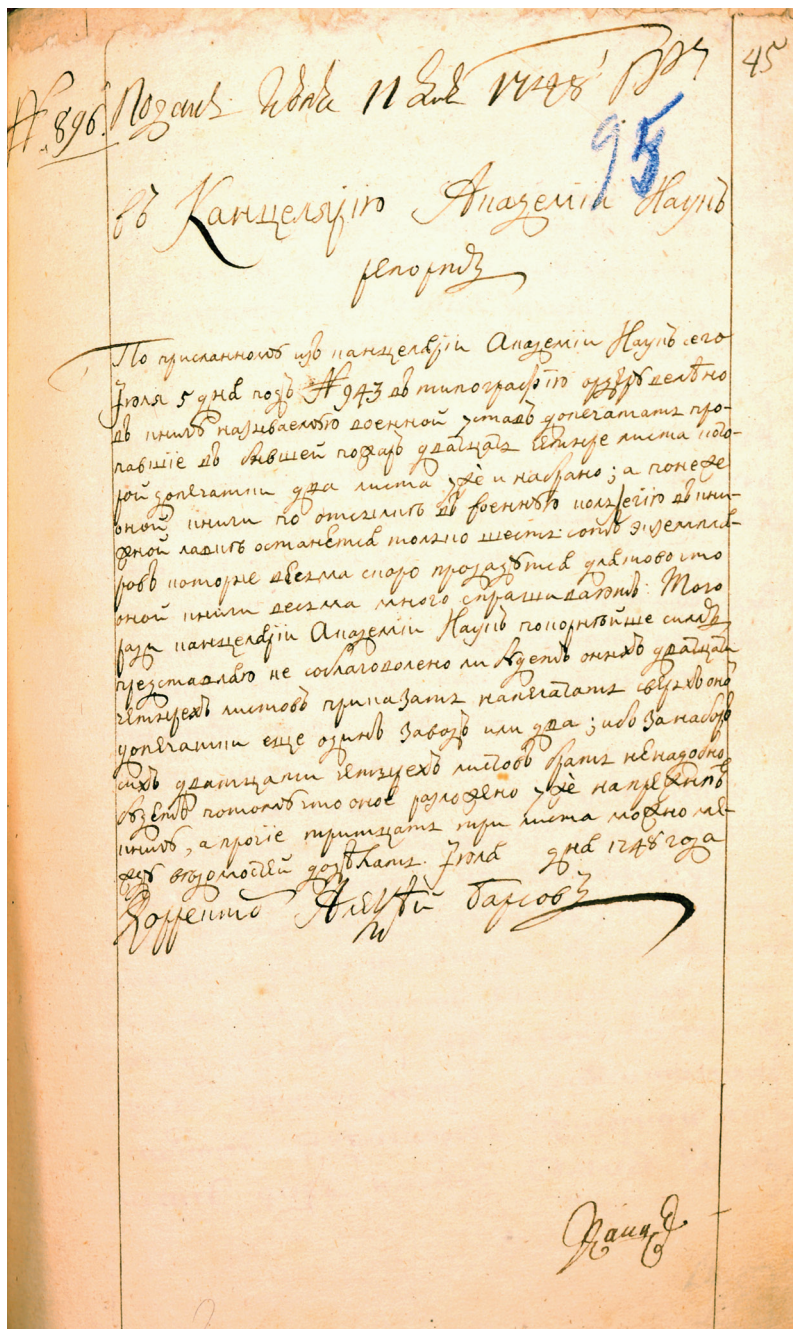 45
№ 896. Подан Июля 11 дня 1748
95
въ Канцелярїю Академїи Наукъ
репортъ
По присланному изъ канцелярїи Академїи Наукъ сего
Iюля 5 дня подъ № 943 въ типографїю ордеру велѣно
въ книгу называемую военной уставъ допечатать про-
павшїе въ бывшей пожаръ дватцать четыре листа кото-
рой допечатки два листа уже и набрано; а понеже
оной книги по отсылкѣ въ военную коллегїю въ кни-
жной лавкѣ останется только шесть сотъ экземпля-
ровъ которые весьма скоро продадутся для того что
оной книги весьма много спрашиваютъ. Того
ради канцелярїи Академїи Наукъ покорнѣйше симъ
представляю не соблаговолено ли будетъ оныхъ дватцати
четырехъ листовъ приказать напечатать сверхъ оной
допечатки еще одинъ заводъ или два; ибо за наборъ
сихъ дватцати четырехъ листовъ брать ненадобно
будетъ потому что оное разложено уже на прежнихъ
книгъ, а прочїе тритцать три листа можно ме-
жду вѣдомостей додѣлать. Iюля дня 1748 года
Корректоръ Алексѣй Барсовъ